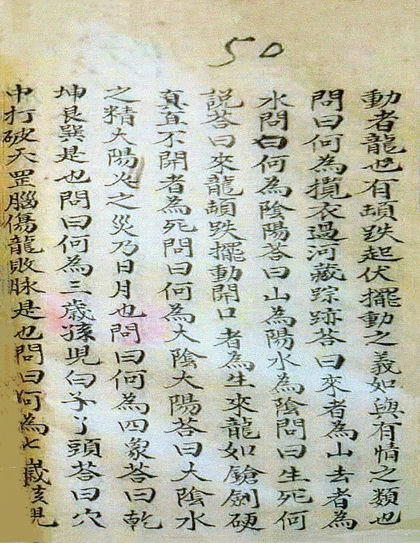 50
動者龍也有頓跌起伏擺動之義如與有情之類也
問曰何為攬衣過河藏踪跡答曰來者為山去者為
水問曰何為陰陽答曰山為陽水為陰問曰生死何
說答曰來龍頓跌擺動開口者為生來龍如鎗劍硬
真直不開者為死問曰何為大陰大陽答曰大陰水
之精大陽火之災乃日月也問曰何為四象答曰乾
坤艮巽是也問曰何為三歲孫児白了頭答曰穴
中打破天罡腦傷龍敗脉是也問曰何為七歲亥児